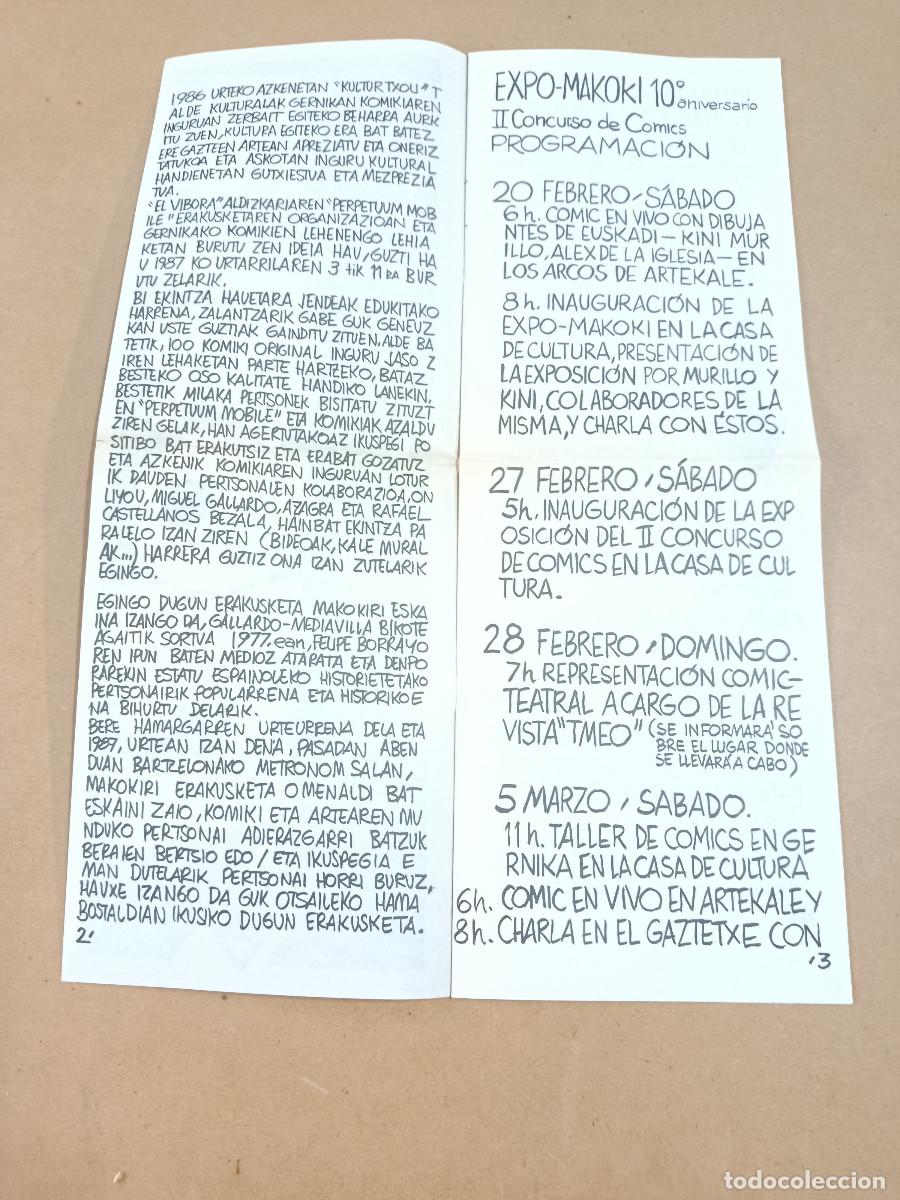 1986 URTEKO AZKENETAN "KULTUR TXOU" T
ALDE KULTURALAK GERNIKAN KOMIKIAREN
INGURUAN ZERBAIT EGITEKO BEHARRA AURK
ITU ZUEN, KULTURA EGITEKO ERA BAT BATEZ
ERE GAZTEEN ARTEAN APREZIATU ETA ONERIZ
TATUKOA ETA ASKOTAN INGURU KULTURAL
HANDIENETAN GUTXIESTUA ETA MEZPREZIA
TUA.
"EL VIBORA" ALDIZKARIAREN "PERPETUUM MOB
ILE" ERAKUSKETAREN ORGANIZAZIOAN ETA
GERNIKAKO KOMIKIEN LEHENENGO LEHIA
KETAN BURUTU ZEN IDEIA HAU, GUZTI HA
U 1987 KO URTARRILAREN 3 tik 11 RA BUR
UTU ZELARIK.
BI EKINTZA HAUETARA JENDEAK EDUKITAKO
HARRENA, ZALANTZARIK GABE GUK GENEUZ
KAN USTE GUZTIAK GAINDITU ZITUEN, ALDE BA
TETIK, 100 KOMIKI ORIGINAL INGURU JASO Z
IREN LEHAKETAN PARTE HARTZEKO, BATAZ
BESTEKO OSO KALITATE HANDIKO LANEKIN,
BESTETIK MILAKA PERTSONEK BISITATU ZITUZT
EN "PERPETUUM MOBILE" ETA KOMIKIAK AZALDU
ZIREN GELAK, HAN AGERTUTAKOAZ IKUSPEGI PO
SITIBO BAT ERAKUTSIZ ETA ERABAT GOZATUZ
ETA AZKENIK KOMIKIAREN INGURUAN LOTUR
IK DAUDEN PERTSONALEN KOLABORAZIOA, ON
LIYOU, MIGUEL GALLARDO, AZAGRA ETA RAFAEL
CASTELLANOS BEZALA, HAINBAT EKINTZA PA
RALELO IZAN ZIREN (BIDEOAK, KALE MURAL
AK...) HARRERA GUZTIZ ONA IZAN ZUTELARIK
EGINGO.
EGINGO DUGUN ERAKUSKETA MAKOKIRI ESKA
INA IZANGO DA, GALLARDO-MEDIAVILLA BIKOTE
AGAITIK SORTUA 1977.ean, FELIPE BORRAYO
REN IPUN BATEN MEDIOZ ATARATA ETA DENPO
RAREKIN ESTATU ESPAINOLEKO HISTORIETETAKO
PERTSONAIRIK POPULARRENA ETA HISTORIKOE
NA BIHURTU DELARIK.
BERE HAMARGARREN URTEURRENA DELA ETA
1987, URTEAN IZAN DENA, PASADAN ABEN
DUAN BARTZELONAKO METRONOM SALAN,
MAKOKIRI ERAKUSKETA OMENALDI BAT
ESKAINI ZAIO, KOMIKI ETA ARTEAREN MU
NDUKO PERTSONAI ADIERAZGARRI BATZUK
BERAIEN BERTSIO EDO / ETA IKUSPEGIA E
MAN DUTELARIK PERTSONAI HORRI BURUZ,
HAUXE IZANGO DA GUK OTSAILEKO HAMA
BOSTALDIAN IKUSIKO DUGUN ERAKUSKETA.
2'
EXPO-MAKOKI 10º aniversario
II Concurso de Comics
PROGRAMACIÓN
20 FEBRERO, SÁBADO
6 h. COMIC EN VIVO CON DIBUJA
NTES DE EUSKADI - KINI MUR
ILLO, ALEX DE LA IGLESIA - EN
LOS ARCOS DE ARTEKALE.
8 h. INAUGURACIÓN DE LA
EXPO-MAKOKI EN LA CASA
DE CULTURA, PRESENTACIÓN DE
LA EXPOSICIÓN POR MURILLO Y
KINI, COLABORADORES DE LA
MISMA, Y CHARLA CON ÉSTOS.
27 FEBRERO, SÁBADO
5h. INAUGURACIÓN DE LA EXP
OSICIÓN DEL II CONCURSO
DE COMICS EN LA CASA DE CUL
TURA.
28 FEBRERO, DOMINGO.
7h REPRESENTACIÓN COMIC-
TEATRAL A CARGO DE LA RE
VISTA "TMEO" (SE INFORMARÁ SO
BRE EL LUGAR DONDE
SE LLEVARÁ A CABO)
5 MARZO, SABADO.
11 h. TALLER DE COMICS EN GE
RNIKA EN LA CASA DE CULTURA
6h. COMIC EN VIVO EN ARTEKALE Y
8h. CHARLA EN EL GAZTETXE CON
'3
todocoleccion